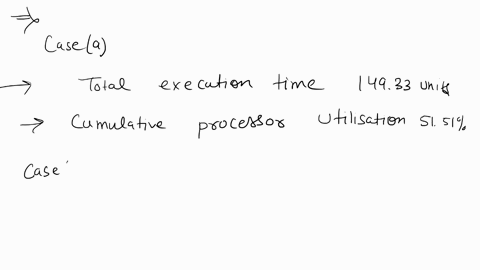 ⇒
Case(a)
→ Total execution time 149.33 units
→ Cumulative processor Utilisation 51.51%
Case'